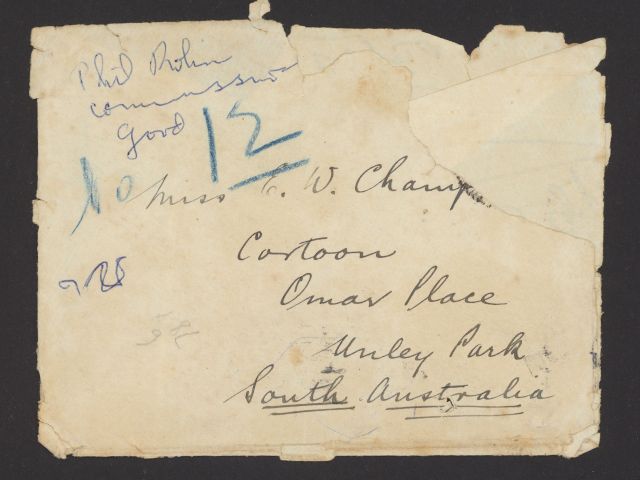 Phil Robin
commission
Good
12
10
Miss E. W. Champ
Cartoon
Omar Place
Unley Park
South Australia